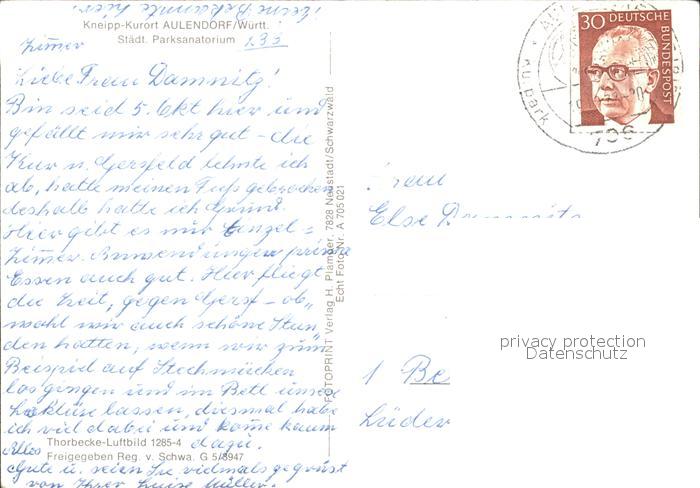 Kneipp-Kurort AULENDORF/Württ.
Städt. Parksanatorium 133
Zimmer
Liebe Frau Damnitz!
Bin seid 5. Okt hier und
gefällt mir sehr gut - die
Kur n. Gersfeld lehnte ich
ab, hatte meinen Fuß gebrochen
deshalb hatte ich Grund.
Hier gibt es nur Einzel=
zimmer. Anwendungen prima
Essen auch gut. Hier fliegt
die Zeit, gegen Gersf - ob„
wohl wir auch schöne Stun„
den hatten, wenn wir zum
Beispiel auf Stechmücken
losgingen und im Bett unsere
Lektüre lassen, diesmal habe
ich viel dabei und kome kaum
dazu.
Alles
Gute u. seien Sie vielmals gegrüst
von Ihrer Luise Müller.
Thorbecke-Luftbild 1285-4
Freigegeben Reg. v. Schwa. G 5/8947
FOTOPRINT Verlag H. Plamper, 7828 Neustadt/Schwarzwald
Echt Foto Nr. A 705 021
30 DEUTSCHE
BUNDESPOST
796
Frau
Else
1 Be
Lüder
privacy protection
Datenschutz